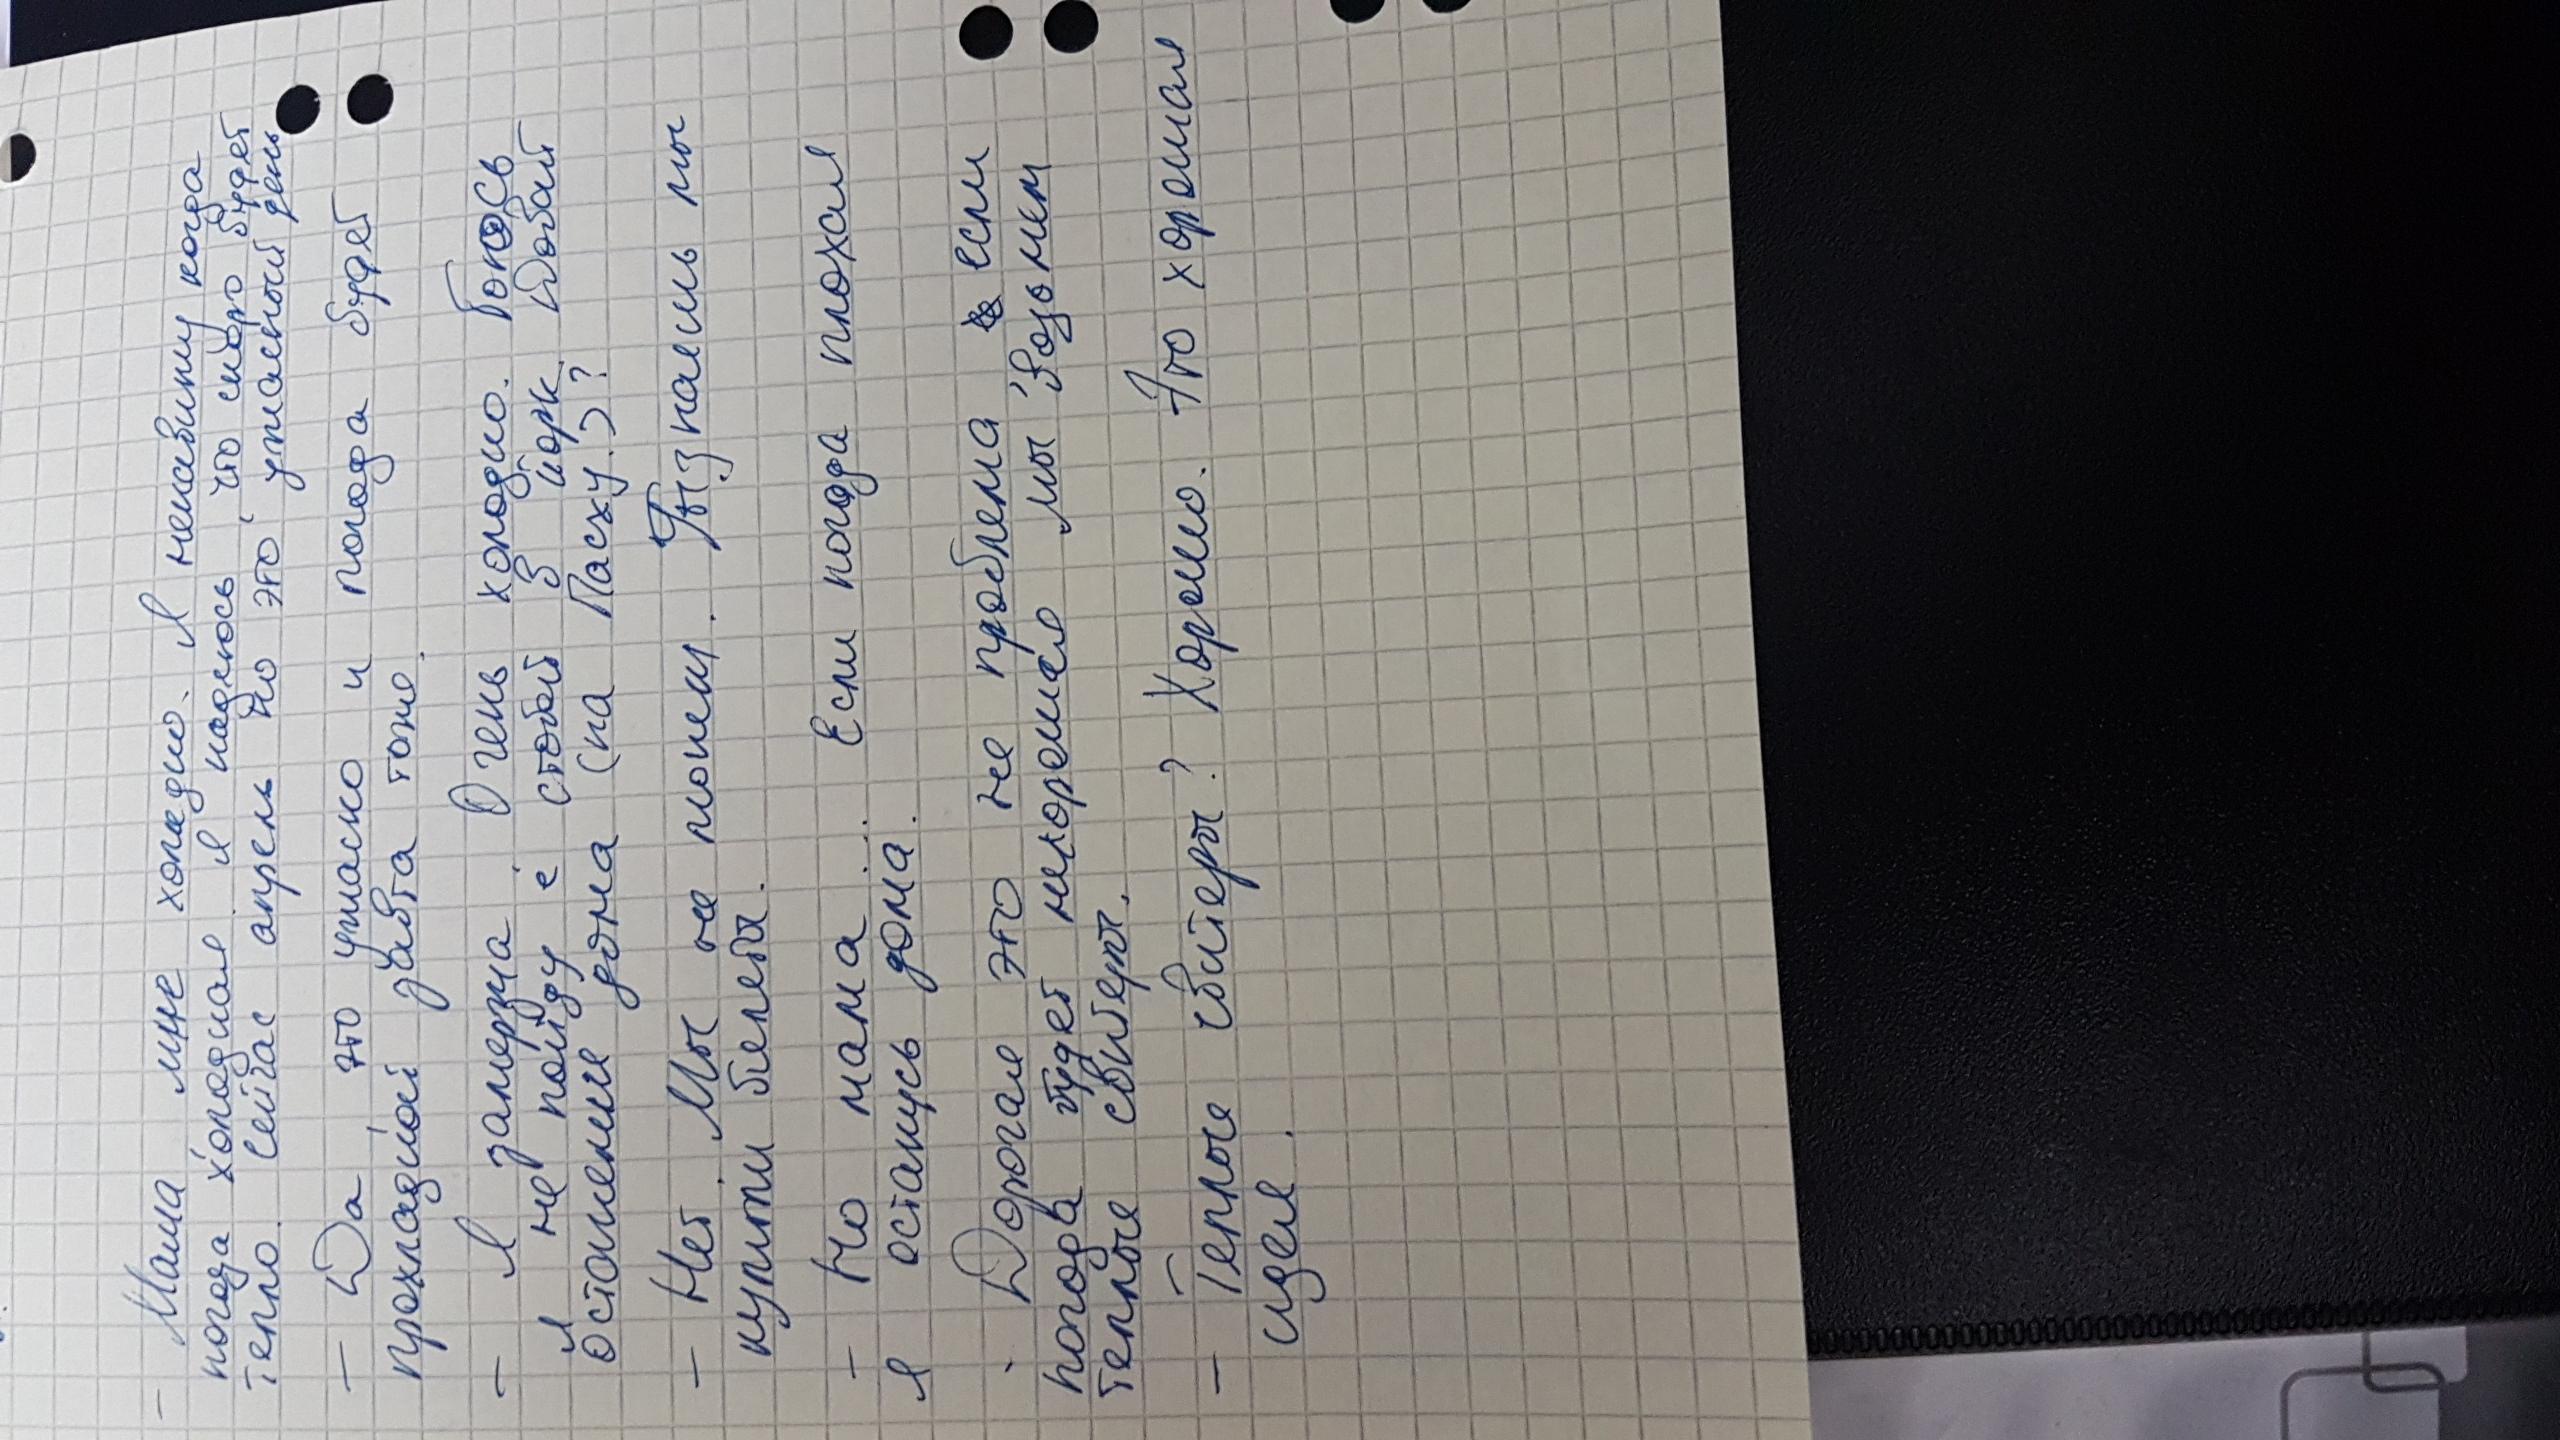 - Мама мне холодно. Я ненавижу когда
погода холодная. Я надеюсь что скоро будет
тепло. Сейчас апрель но это ужасный день
- Да это ужасно и погода будет
прохладной завта тоже.
- Я замерзла. Очень холодно. Боюсь
я не пойду с тобой в йорк
останемся дома (на Пасху.)?
- Нет. Мы не можем. знаешь мы
купили билеты.
- Но мама... Если погода плохая
я останусь дома.
- Дорогая это не проблема если
погода будет нехорошая мы возьмем
теплые свитеры.
- Теплые свитеры? Хорошо. Это хорошая
идея.